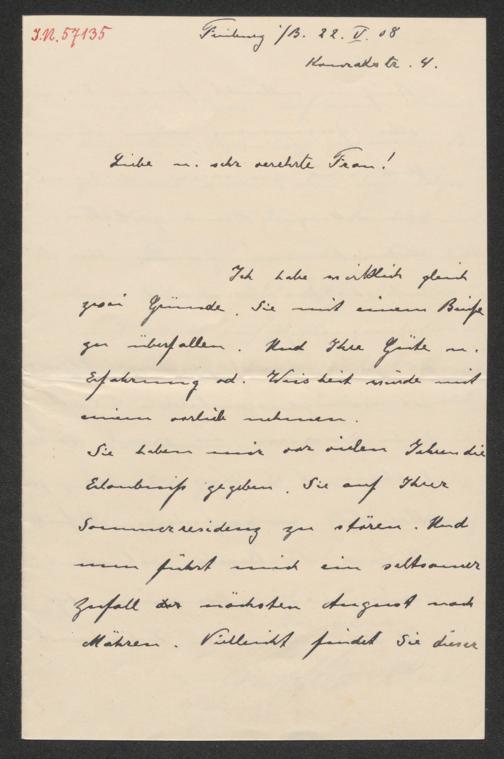 I.N. 57135
Freiburg i/B. 22. V. 08
Konradstr. 4.
Liebe u. sehr verehrte Frau!
Ich habe wirklich gleich
zwei Gründe, Sie mit einem Briefe
zu überfallen. Und Ihre Güte u.
Erfahrung od. Weisheit würde mit
einem vorlieb nehmen.
Sie haben mir vor vielen Jahren die
Erlaubniß gegeben, Sie auf Ihrer
Sommerresidenz zu stören. Und
nun führt mich ein seltsamer
Zufall nächsten August nach
Mähren. Vielleicht findet Sie dieser